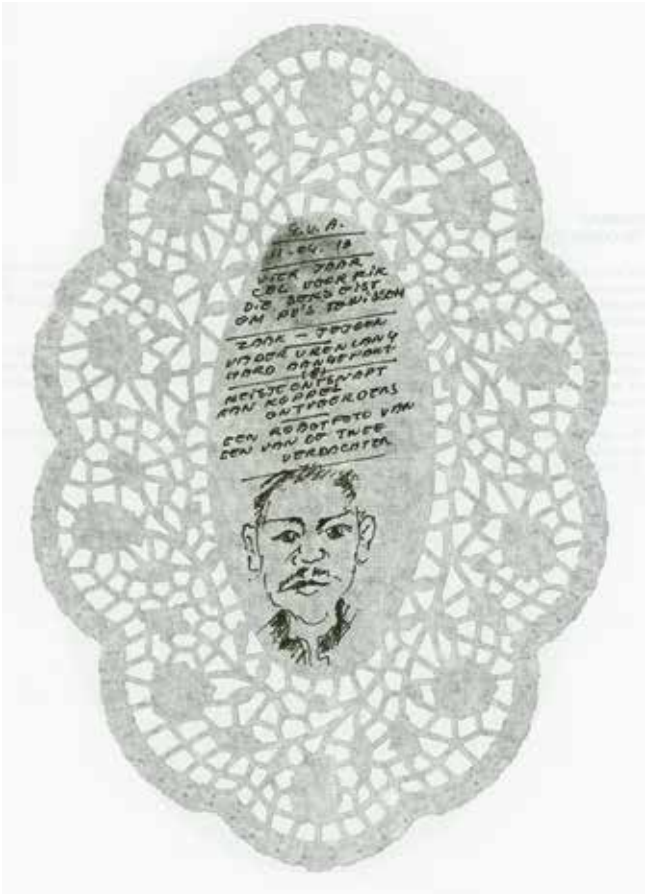 G.V.A.
11-04. 13
VIER JAAR
CEL VOOR RIK
DIE SEKS EIST
OM PV'S TE WISSEN
ZAAK - JESPER
VADER URENLANG
HARD AANGEPAKT
MEISJE ONTSNAPT
AAN KOPPEL
ONTVOERDERS
EEN ROBOTFOTO VAN
EEN VAN DE TWEE
VERDACHTEN